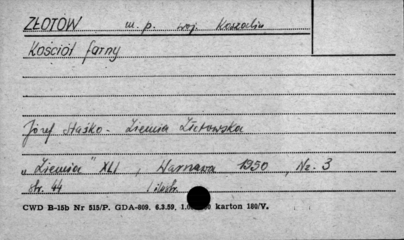 ZŁOTÓW m. p. woj. Koszalin
Kościół farny
Józef Staśko - Ziemia Złotowska
„Ziemia" XLI, Warszawa 1950, Nr. 3
str. 44 1 ilustr.
CWD B-15b Nr 515/P. GDA-809. 6.3.59, karton 180/V.